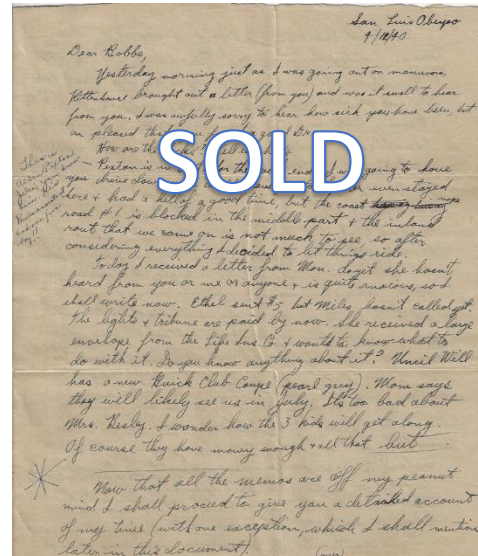 San Luis Obispo
9/18/40
Dear Bobbe,
Yesterday morning just as I was going out on manuvers
Rittenhouse brought out a letter (from you) and was it swell to hear
from you. I was awfully sorry to hear how sick you have been, but
am pleased that you a good Dr.
How are the
SOLD
Poston is for the I was going to have
you drive down or even stayed
here & had a hell of a good time, but the coast
road #1 is blocked in the middle part & the inland
rout that we came on is not much to see, so after
considering everything I decided to let things ride.
Today I received a letter from Mom. She hasn't
heard from you or me or anyone & is quite anxious, so I
shall write now. Ethel sent $5 but Miles hasn't called yet.
The lights & tribune are paid by now. She received a large
envelope from the Life Ins. Co. & wants to know what to
do with it. Do you know anything about it? Uncil Will
has a new Buick Club Coupe (pearl grey). Mom says
they will likely see us in July. It's too bad about
Mrs. I wonder how the 3 kids will get along.
Of course they have money enough & all that but
Now that all the memos are off my peanut
mind I shall proceed to give you a detailed account
of my time (with one exception, which I shall mention
later in this document).